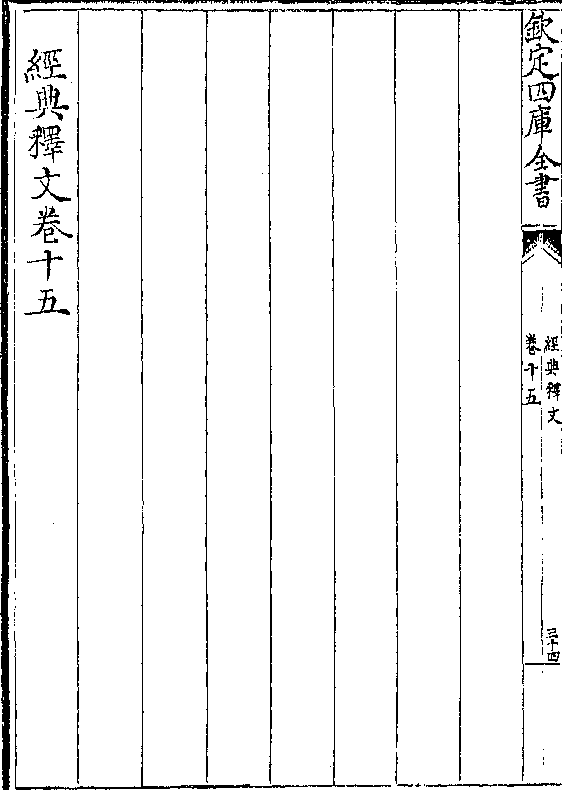 欽定四庫全書
經典釋文
卷十五
三十四
經典釋文卷十五